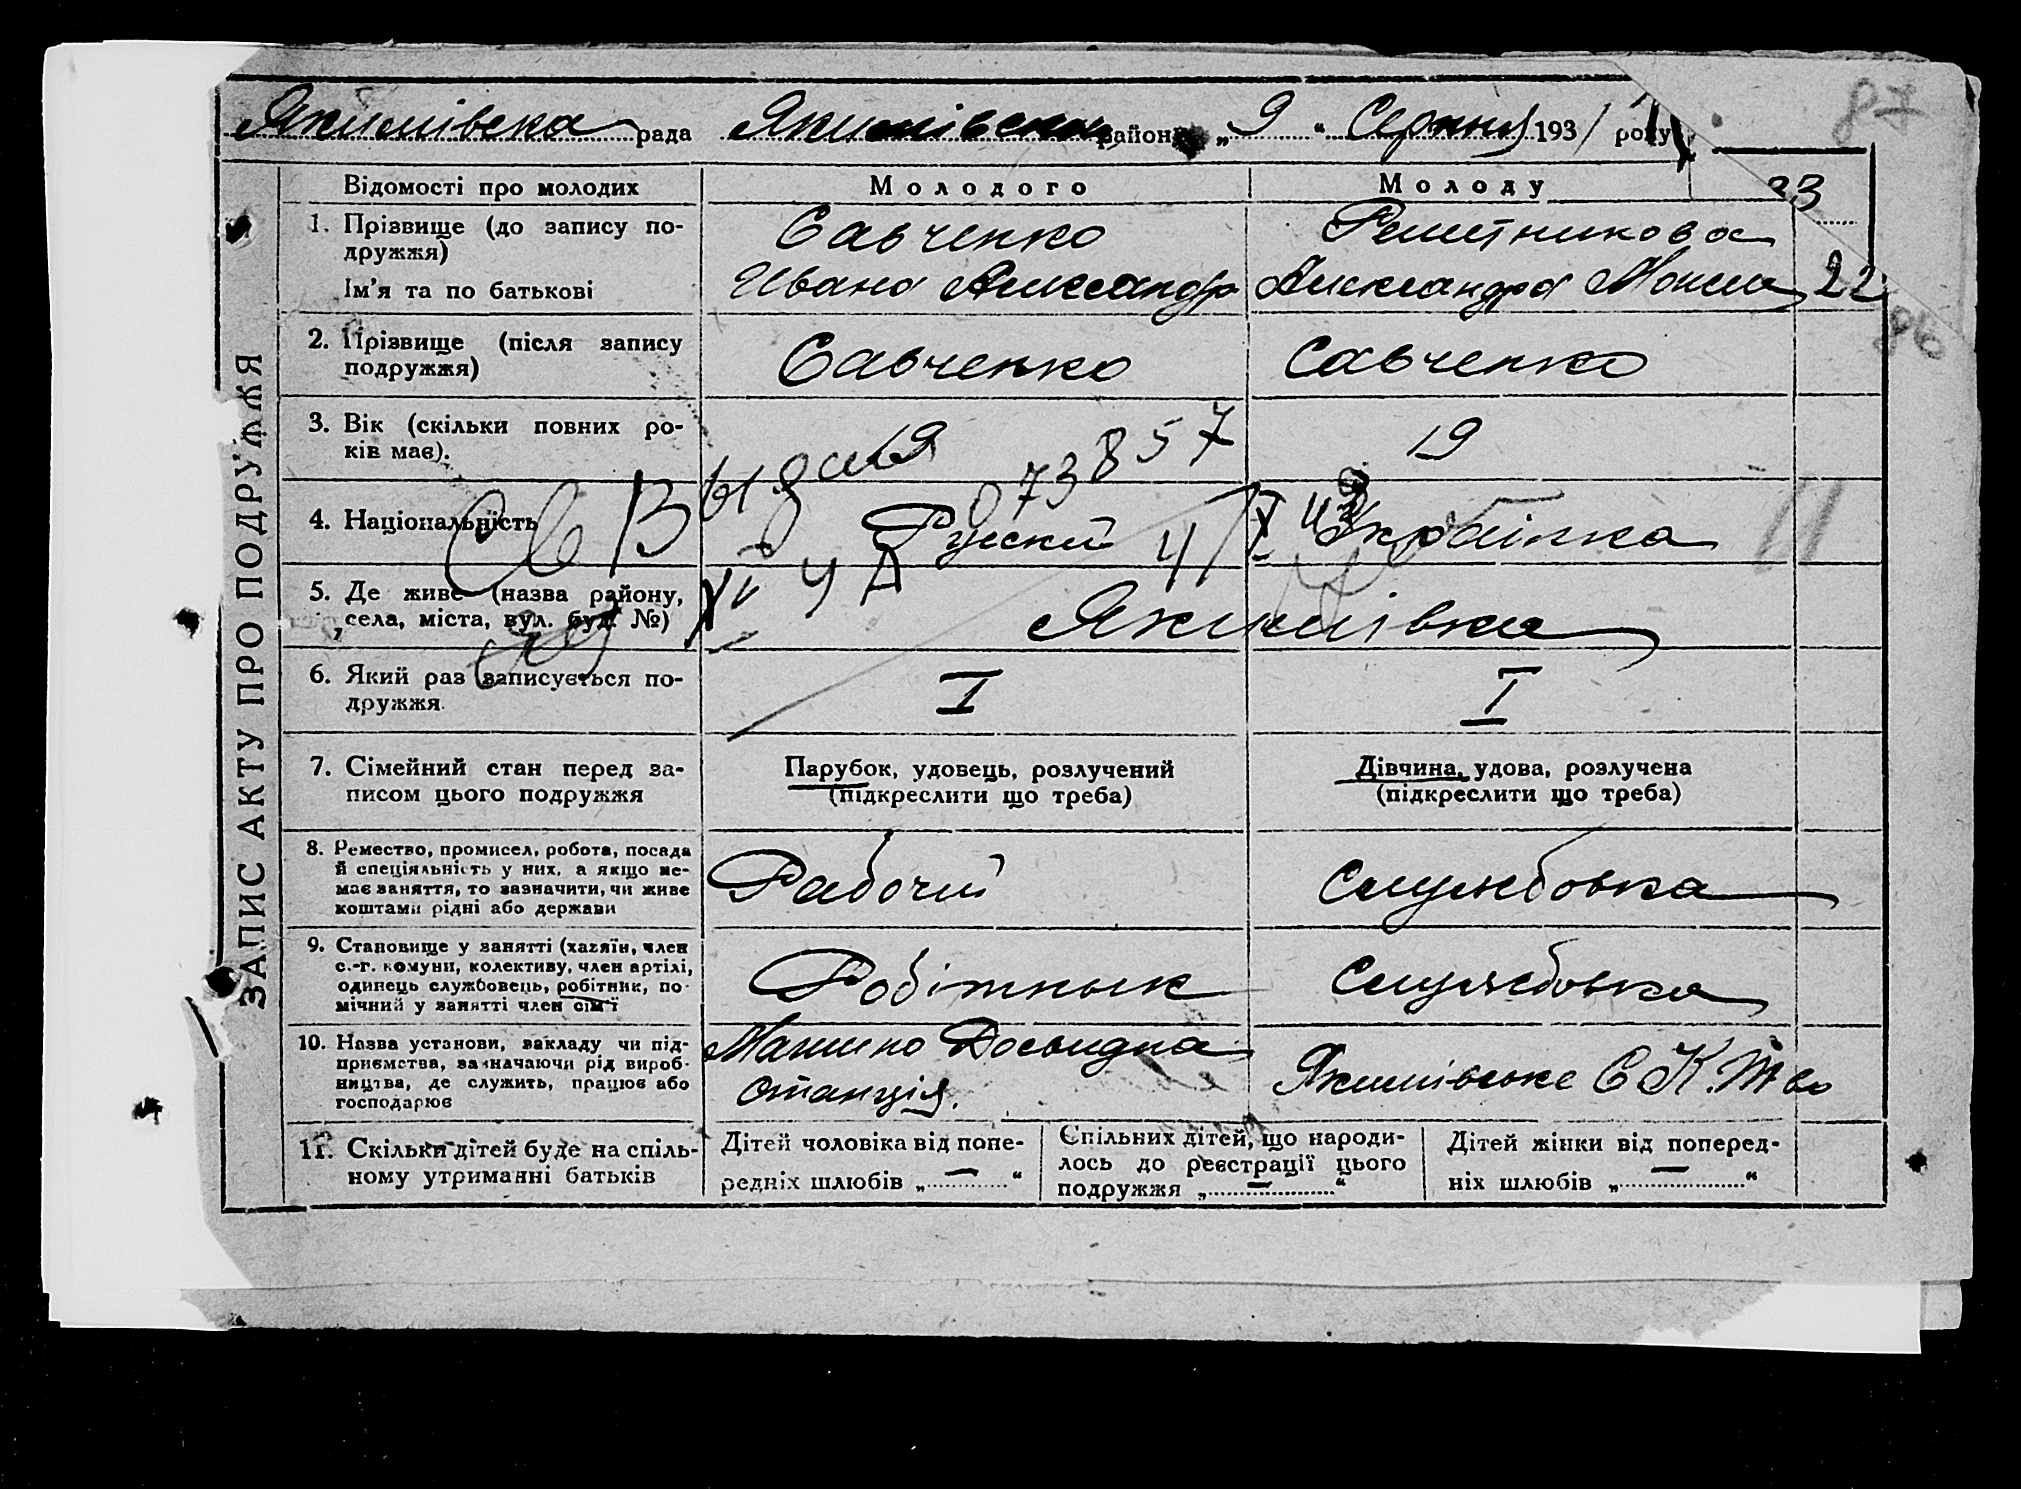 87
Якимівська рада Якимівськ району „9“ Серпня 1931 року
23
ЗАПИС АКТУ ПРО ПОДРУЖЖЯ
Відомості про молодих Молодого Молоду
1. Прізвище (до запису по-
дружжя)
Савченко Решетникова
Ім'я та по батькові Ивана Александр Александра Моисе 22
96
2. Прізвище (після запису
подружжя)
Савченко Савченко
3. Вік (скільки повних ро-
ків має).
19 19
073857
4. Національність Руский Українка
Св В
5. Де живе (назва району,
села, міста, вул. буд. №)
Якимівка
6. Який раз записується по-
дружжя.
I I
7. Сімейний стан перед за-
писом цього подружжя
Парубок, удовець, розлучений
(підкреслити що треба)
Дівчина, удова, розлучена
(підкреслити що треба)
8. Ремество, промисел, робота, посада
й спеціяльність у них, а якщо не-
має заняття, то зазначити, чи живе
коштами рідні або держави
Рабочий Службовка
9. Становище у занятті (хазяїн, член
с.-г. комуни, колективу, член артілі,
одинець службовець, робітник, по-
мічний у занятті член сім'ї
Робітнык Службовка
10. Назва установи, закладу чи під-
приємства, зазначаючи рід вироб-
ництва, де служить, працює або
господарює
Машино Досьидна
станція.
Якимівське С К. Т во
11. Скільки дітей буде на спіль-
ному утриманні батьків
Дітей чоловіка від попе-
редніх шлюбів „ — “
Спільних дітей, що народи-
лось до реєстрації цього
подружжя „ — “
Дітей жінки від поперед-
ніх шлюбів „ — “